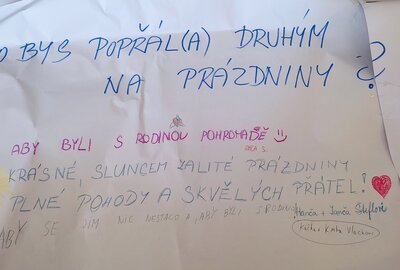 O BYS POPŘÁL(A) DRUHÝM
NA PRÁZDNINY ?
ABY BYLI S RODINOU POHROMADĚ
KRÁSNÉ, SLUNCEM ZALITÉ PRÁZDNINY
PLNÉ POHODY A SKVĚLÝCH PŘÁTEL!
ABY SE JIM NIC NESTALO A ABY BYLI S RODINOU
Hanča + Janča